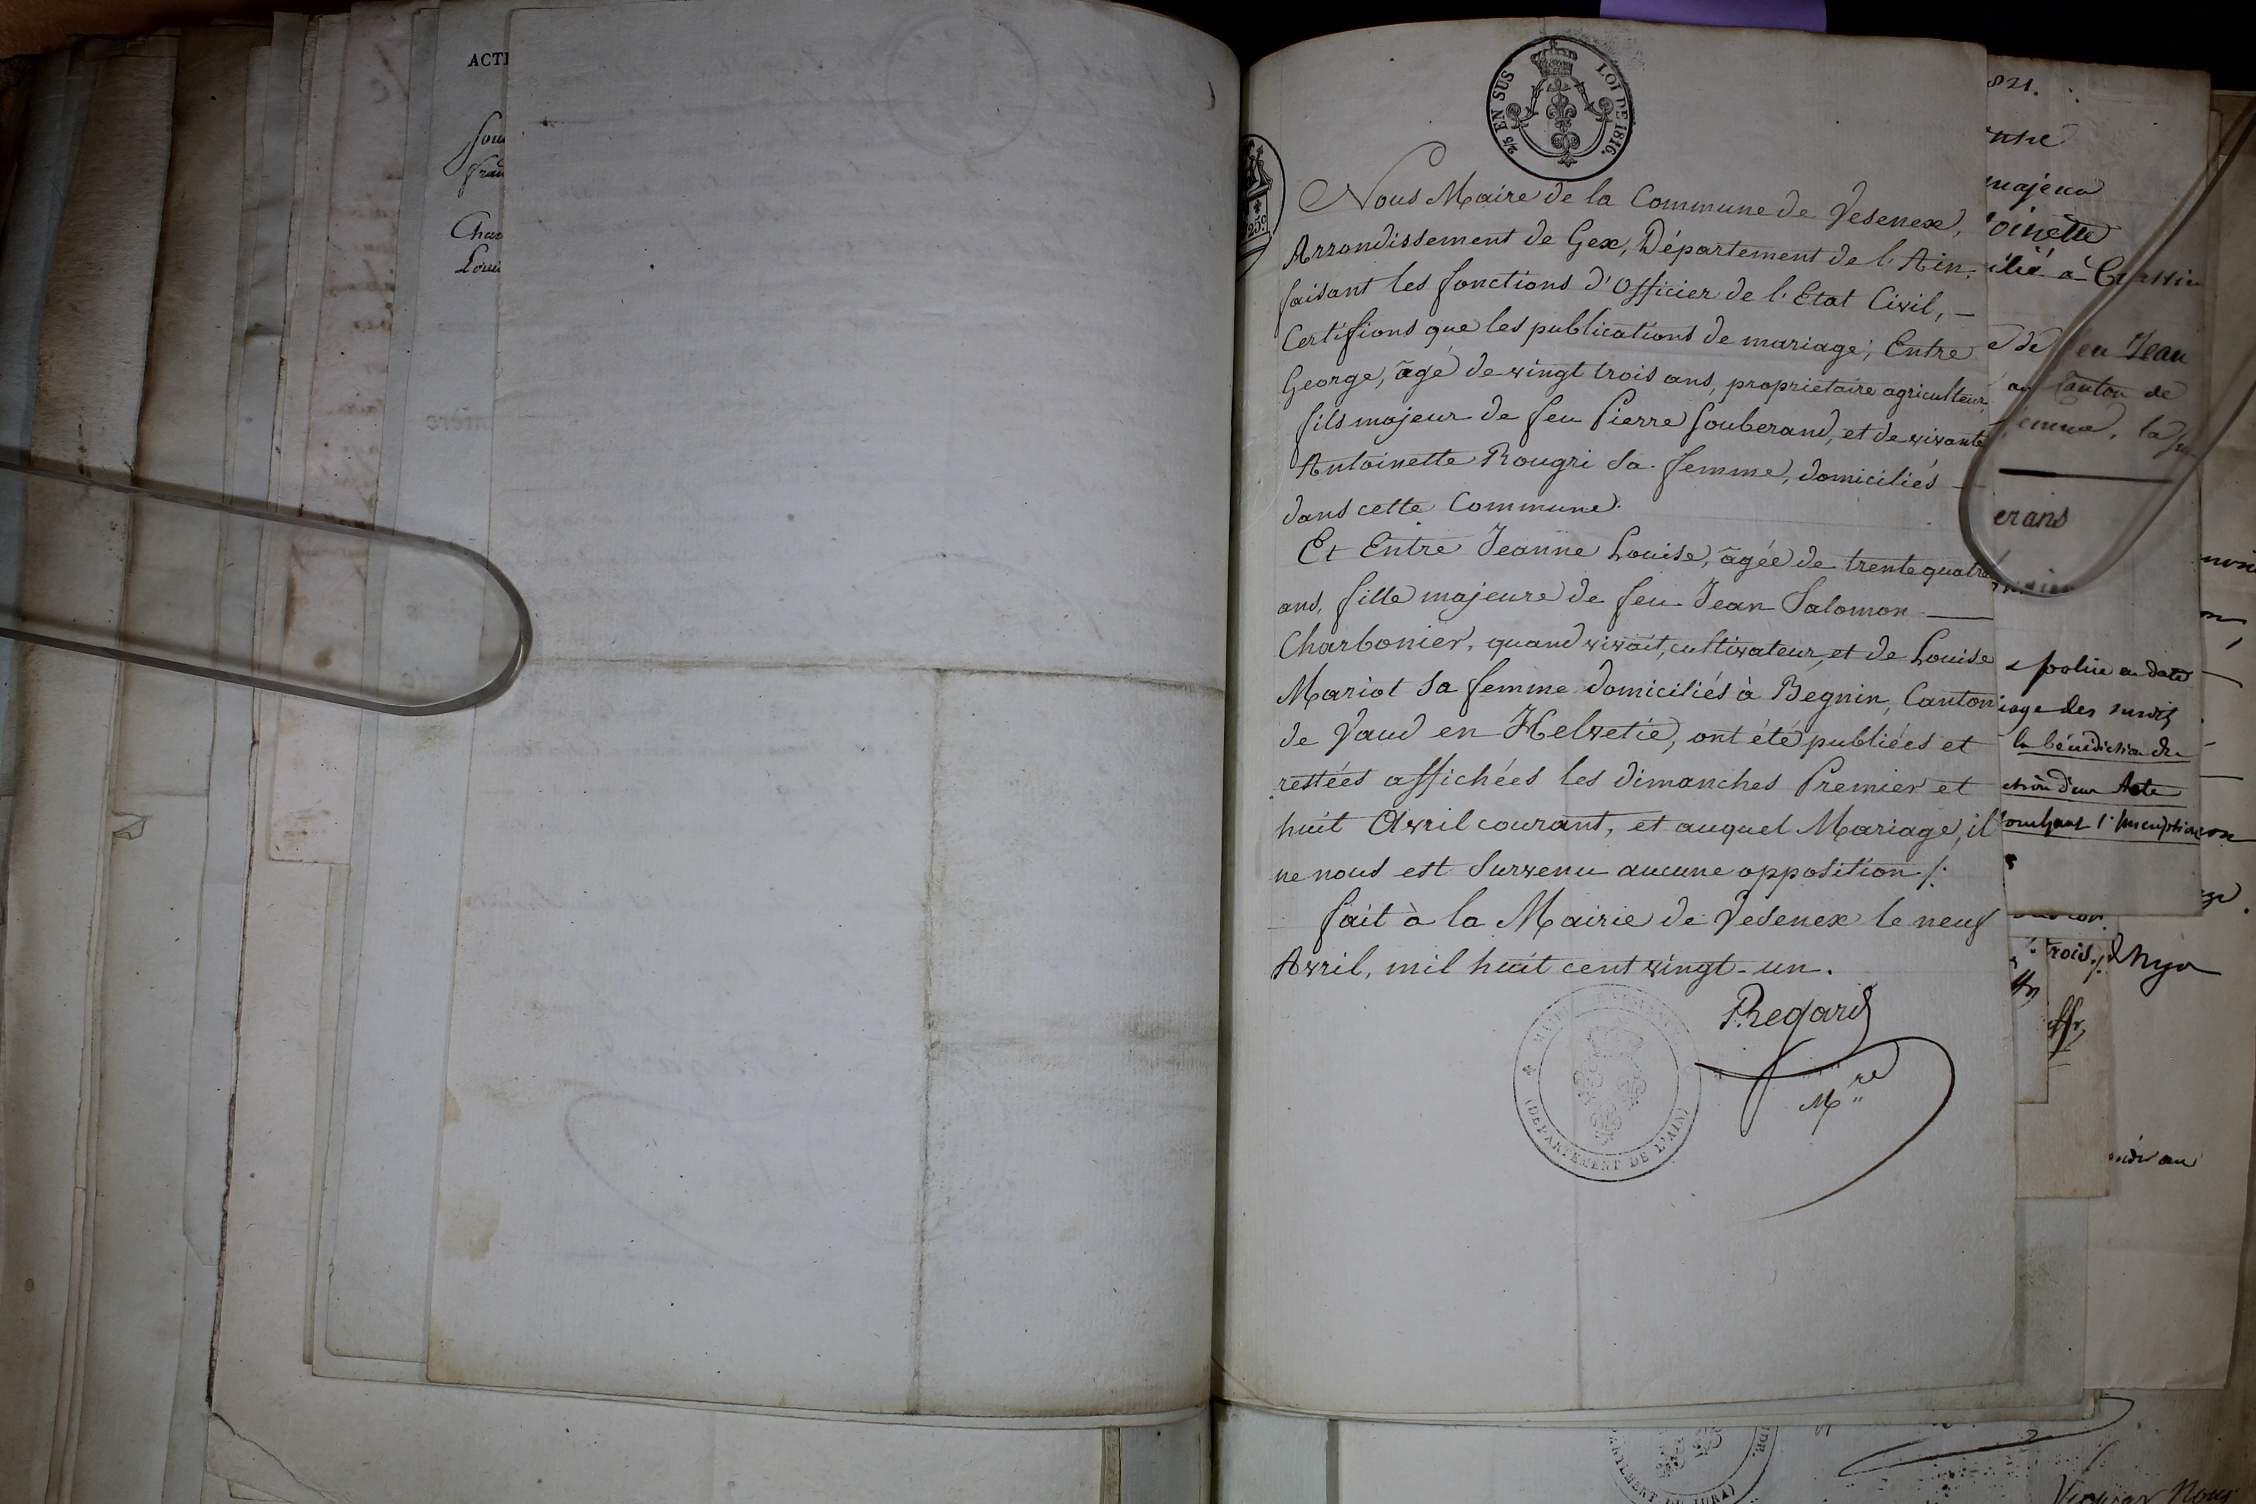 ACTE
Chas
Loui
2/5 EN SUS
LOI DE 1816.
25c
Nous Maire de la Commune de Vesenex,
Arrondissement de Gex, Département de l'Ain,
faisant les fonctions d'Officier de l'Etat Civil, —
Certifions que les publications de mariage; Entre
George, âgé de vingt trois ans, propriétaire agriculteur,
fils majeur de feu Pierre Souberand, et de vivante
Antoinette Rougri sa femme, domiciliés —
dans cette Commune.
Et Entre Jeanne Louise, âgée de trente quatre
ans, fille majeure de feu Jean Salomon —
Charbonier, quand vivait, cultivateur, et de Louise
Mariot sa femme domiciliés à Begnin, Canton
de Vaud en Helvetie, ont été publiées et
restées affichées les dimanches Premier et
huit Avril courant, et auquel Mariage, il
ne nous est survenu aucune opposition /.
fait à la Mairie de Vesenex le neuf
Avril, mil huit cent vingt-un.
Regard
Mre
(DEPARTEMENT DE L'AIN)
821.
majeur
oinette
ilié à Crassier
e de feu Jean
Canton de
femme, la
erans
police en date
iage des susdits
la bénédiction du
ction d'un Acte
touchant l'Inscription
trois /.
Nyon